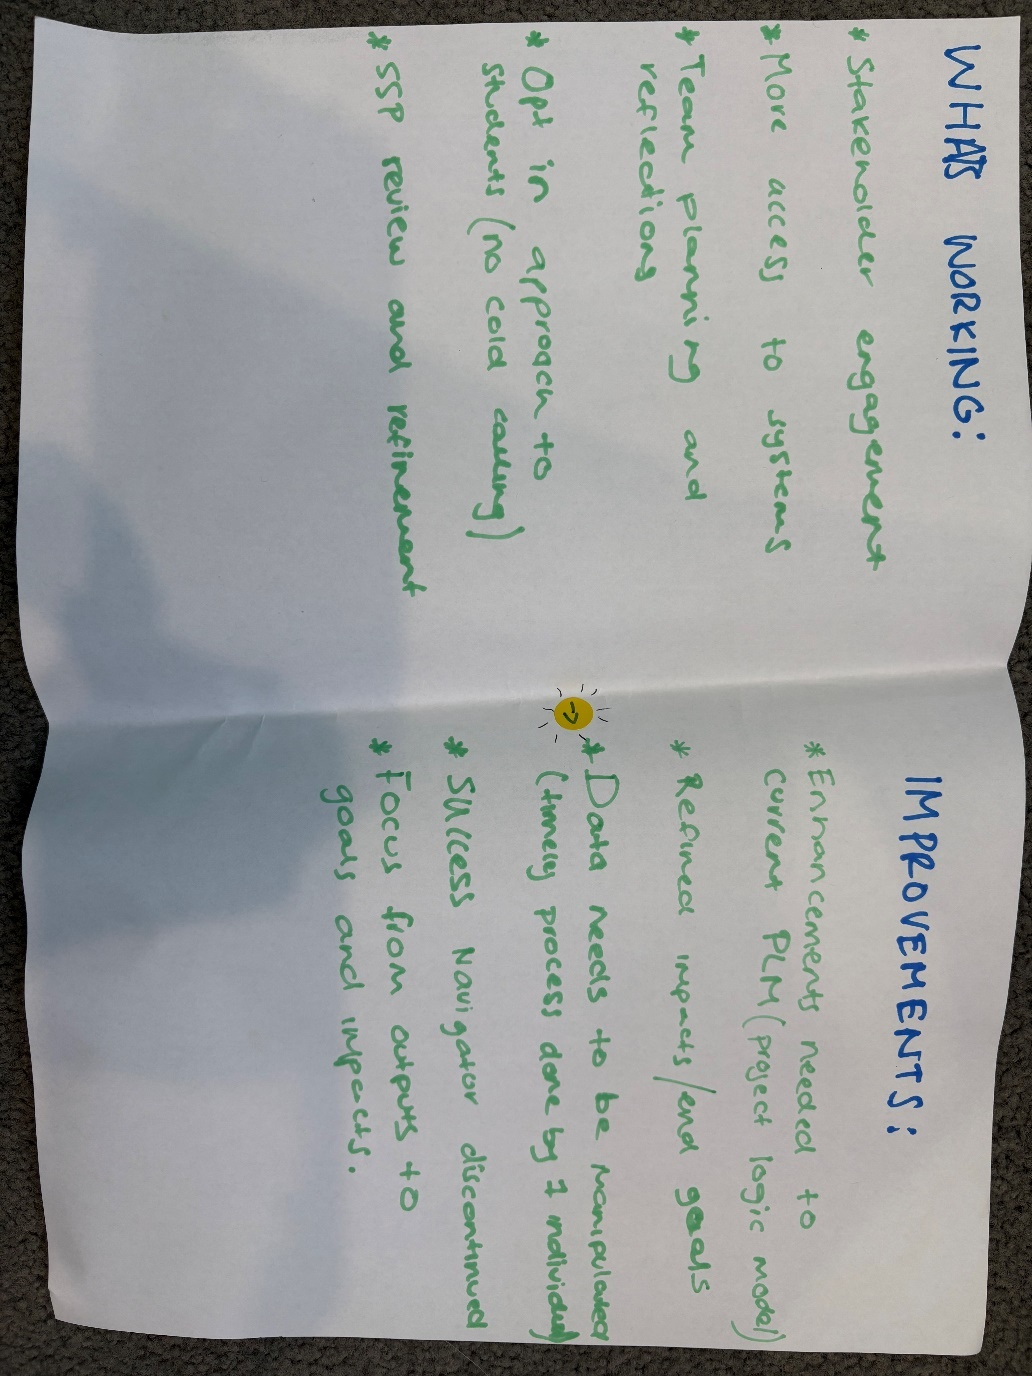 WHATS WORKING:
* Stakeholder engagement
* More access to systems
* Team planning and
reflections
* Opt in approach to
students (no cold calling)
* SSP review and refinement
IMPROVEMENTS:
* Enhancements needed to
current PLM (project logic model)
* Refined impacts/end goals
* Data needs to be manipulated
(timely process done by 1 individual)
* Success Navigator discontinued
* Focus from outputs to
goals and impacts.